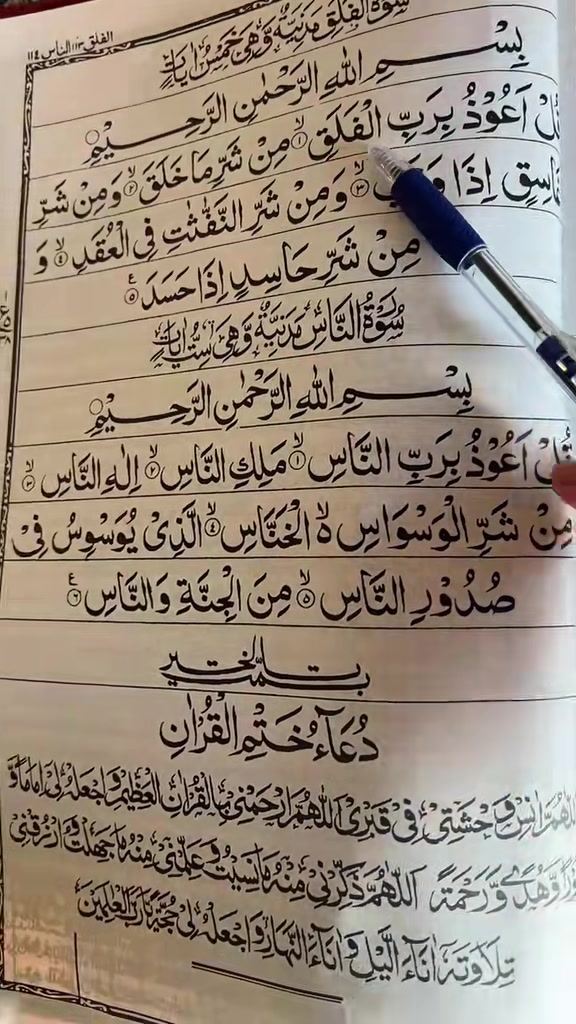 الفلق ١١٣ الناس ١١٤
سُوْرَةُ الْفَلَقِ مَدَنِيَّةٌ وَّهِيَ خَمْسُ اٰيَاتٍ
بِسْمِ اللهِ الرَّحْمٰنِ الرَّحِيْمِ
قُلْ اَعُوْذُ بِرَبِّ الْفَلَقِ ۙ﴿١﴾ مِنْ شَرِّ مَا خَلَقَ ۙ﴿٢﴾ وَمِنْ شَرِّ
غَاسِقٍ اِذَا وَقَبَ ۙ﴿٣﴾ وَمِنْ شَرِّ النَّفّٰثٰتِ فِى الْعُقَدِ ۙ﴿٤﴾ وَ
مِنْ شَرِّ حَاسِدٍ اِذَا حَسَدَ ﴿٥﴾ ع
سُوْرَةُ النَّاسِ مَدَنِيَّةٌ وَّهِيَ سِتُّ اٰيَاتٍ
بِسْمِ اللهِ الرَّحْمٰنِ الرَّحِيْمِ
قُلْ اَعُوْذُ بِرَبِّ النَّاسِ ۙ﴿١﴾ مَلِكِ النَّاسِ ۙ﴿٢﴾ اِلٰهِ النَّاسِ ۙ﴿٣﴾
مِنْ شَرِّ الْوَسْوَاسِ ەۙ الْخَنَّاسِ ۙ﴿٤﴾ الَّذِىْ يُوَسْوِسُ فِىْ
صُدُوْرِ النَّاسِ ۙ﴿٥﴾ مِنَ الْجِنَّةِ وَالنَّاسِ ﴿٦﴾ ع
تمت بالخير
دُعَآءُ خَتْمِ الْقُرْاٰنِ
اَللّٰهُمَّ اٰنِسْ وَحْشَتِىْ فِىْ قَبْرِىْ اَللّٰهُمَّ ارْحَمْنِىْ بِالْقُرْاٰنِ الْعَظِيْمِ وَاجْعَلْهُ لِىْ اِمَامًا وَّ
نُوْرًا وَّهُدًى وَّرَحْمَةً اَللّٰهُمَّ ذَكِّرْنِىْ مِنْهُ مَا نَسِيْتُ وَعَلِّمْنِىْ مِنْهُ مَا جَهِلْتُ وَارْزُقْنِىْ
تِلَاوَتَهٗ اٰنَآءَ الَّيْلِ وَاٰنَآءَ النَّهَارِ وَاجْعَلْهُ لِىْ حُجَّةً يَّا رَبَّ الْعٰلَمِيْنَ